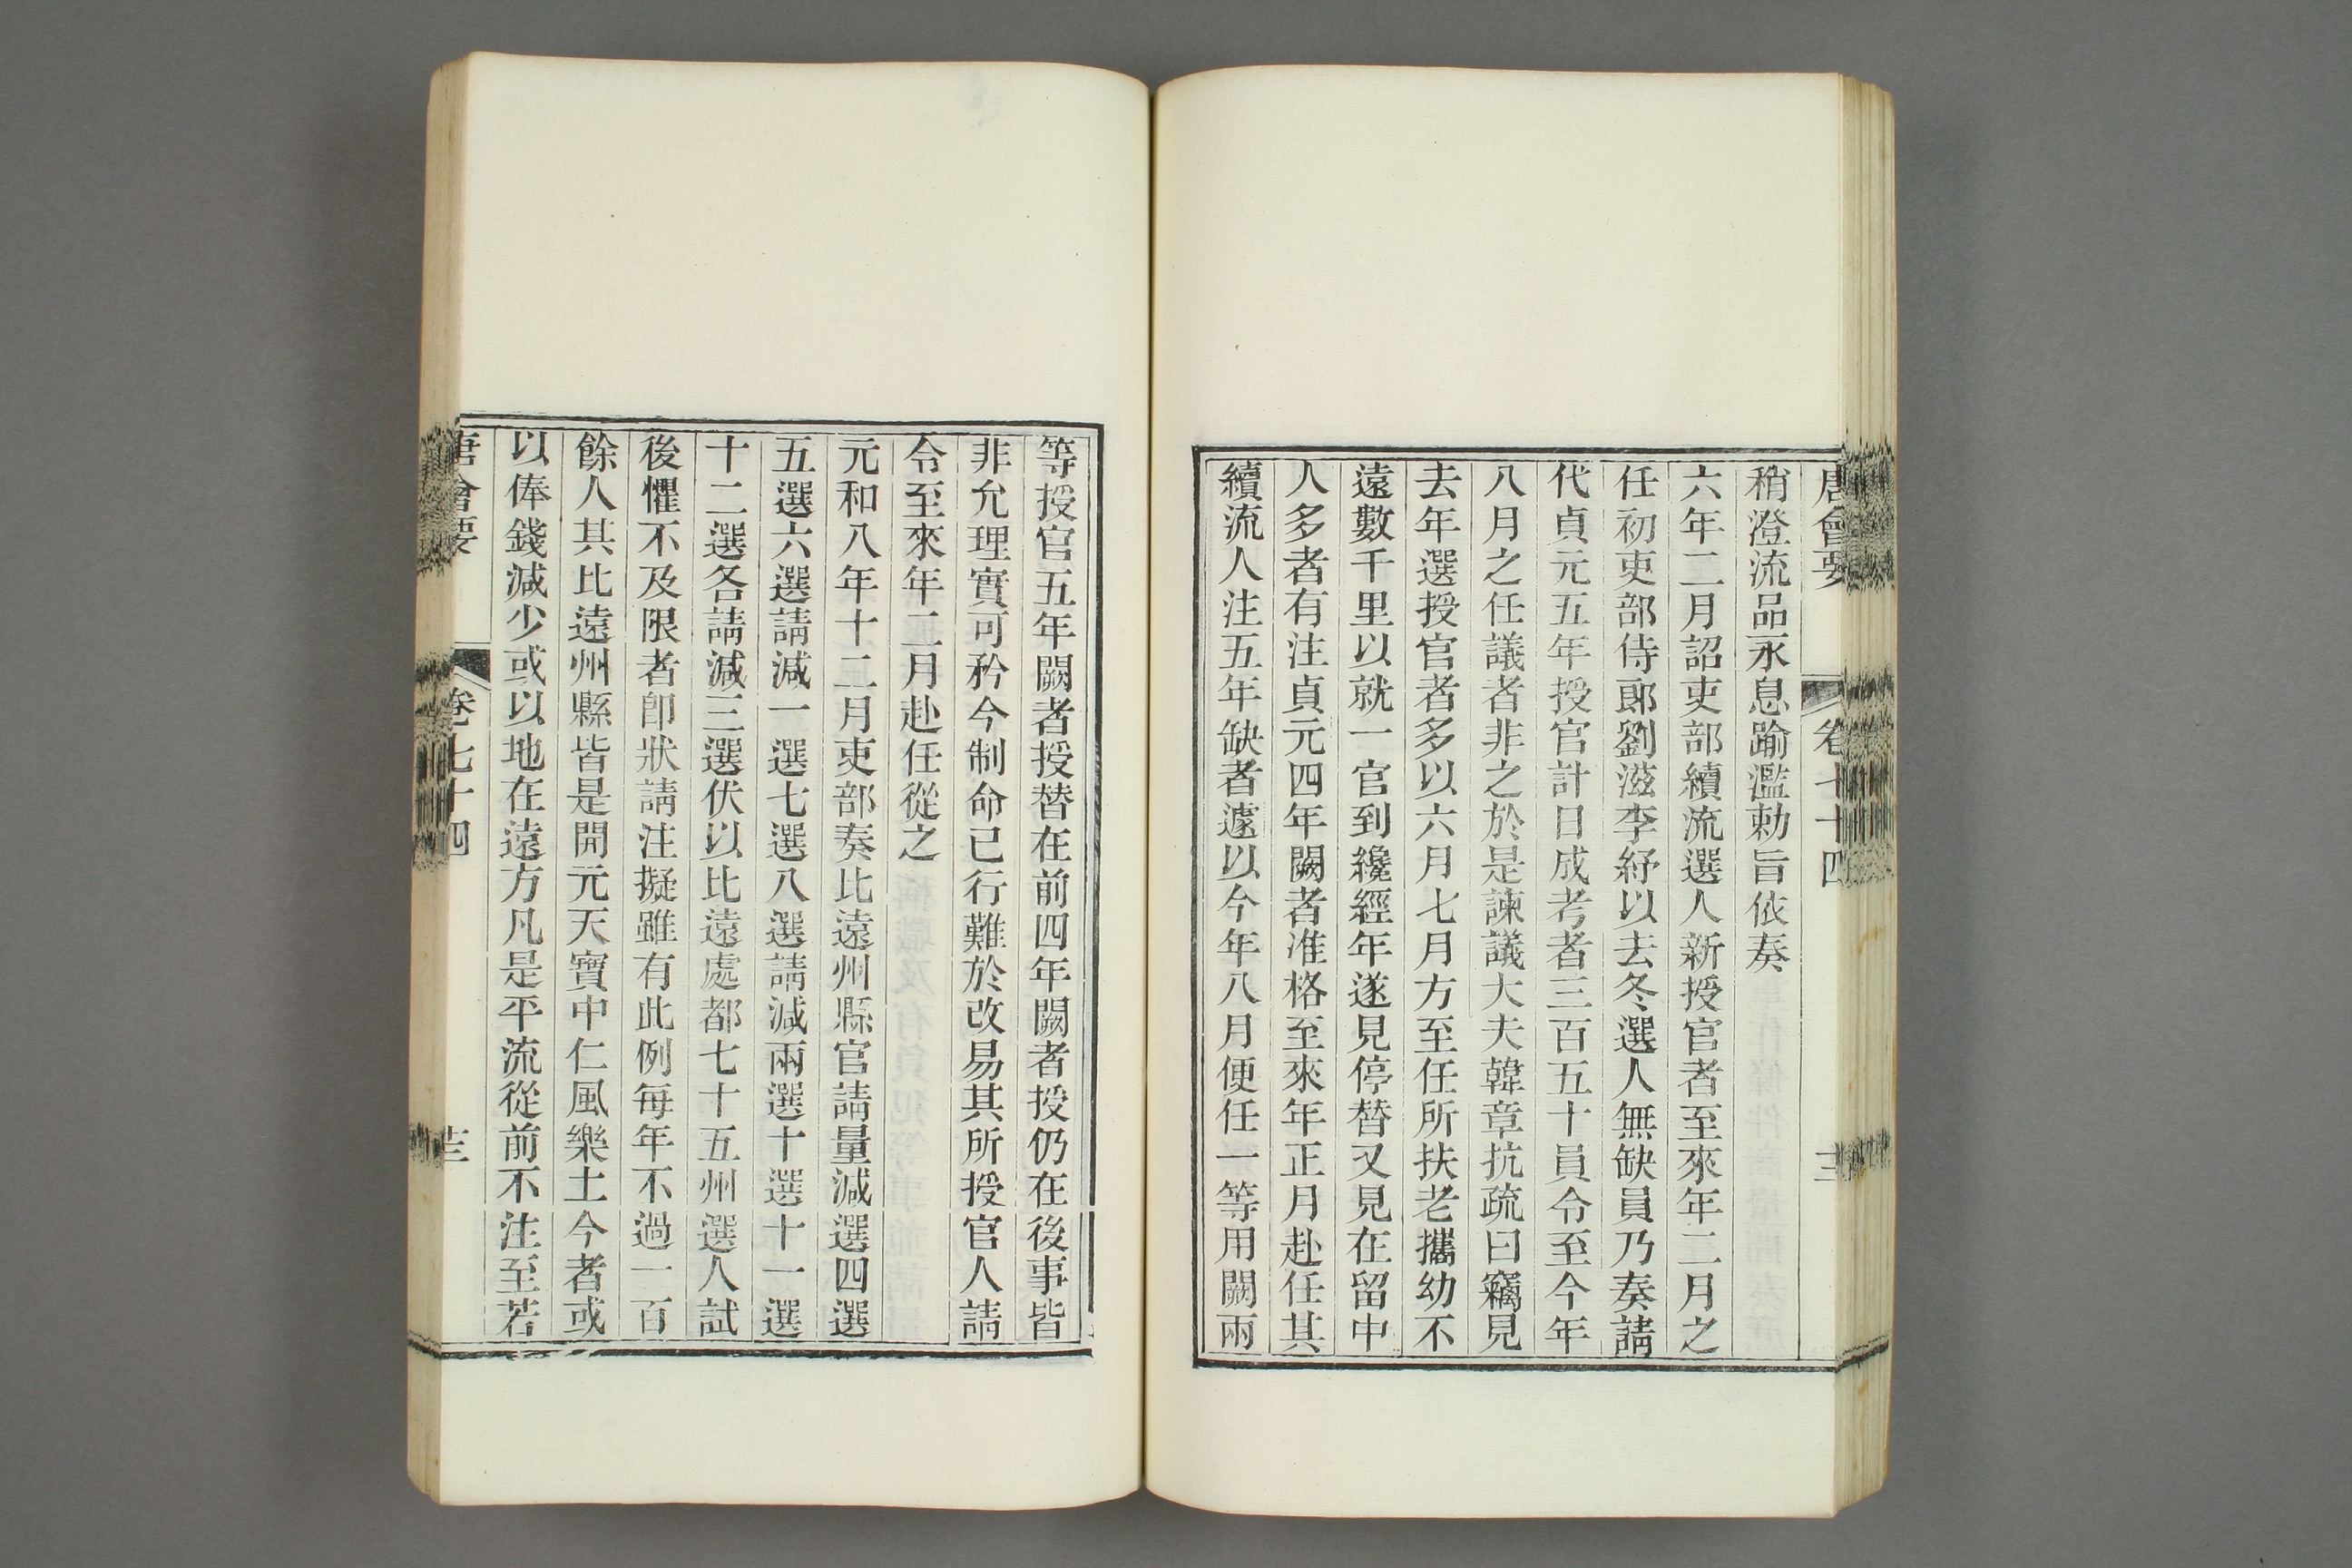 唐會要 卷七十四
稍澄流品永息踰濫勅旨依奏
六年二月詔吏部續流選人新授官者至來年二月之
任初吏部侍郎劉滋李紓以去冬選人無缺員乃奏請
代貞元五年授官計日成考者三百五十員令至今年
八月之任議者非之於是諫議大夫韓章抗疏曰竊見
去年選授官者多以六月七月方至任所扶老攜幼不
遠數千里以就一官到纔經年遂見停替又見在留中
人多者有注貞元四年闕者准格至來年正月赴任其
續流人注五年缺者遽以今年八月便任一等用闕兩
等授官五年闕者授替在前四年闕者授仍在後事皆
非允理實可矜今制命已行難於改易其所授官人請
令至來年二月赴任從之
元和八年十二月吏部奏比遠州縣官請量減選四選
五選六選請減一選七選八選請減兩選十選十一選
十二選各請減三選伏以比遠處都七十五州選人試
後懼不及限者卽狀請注擬雖有此例每年不過一百
餘人其比遠州縣皆是開元天寶中仁風樂土今者或
以俸錢減少或以地在遠方凡是平流從前不注至若
唐會要 卷七十四